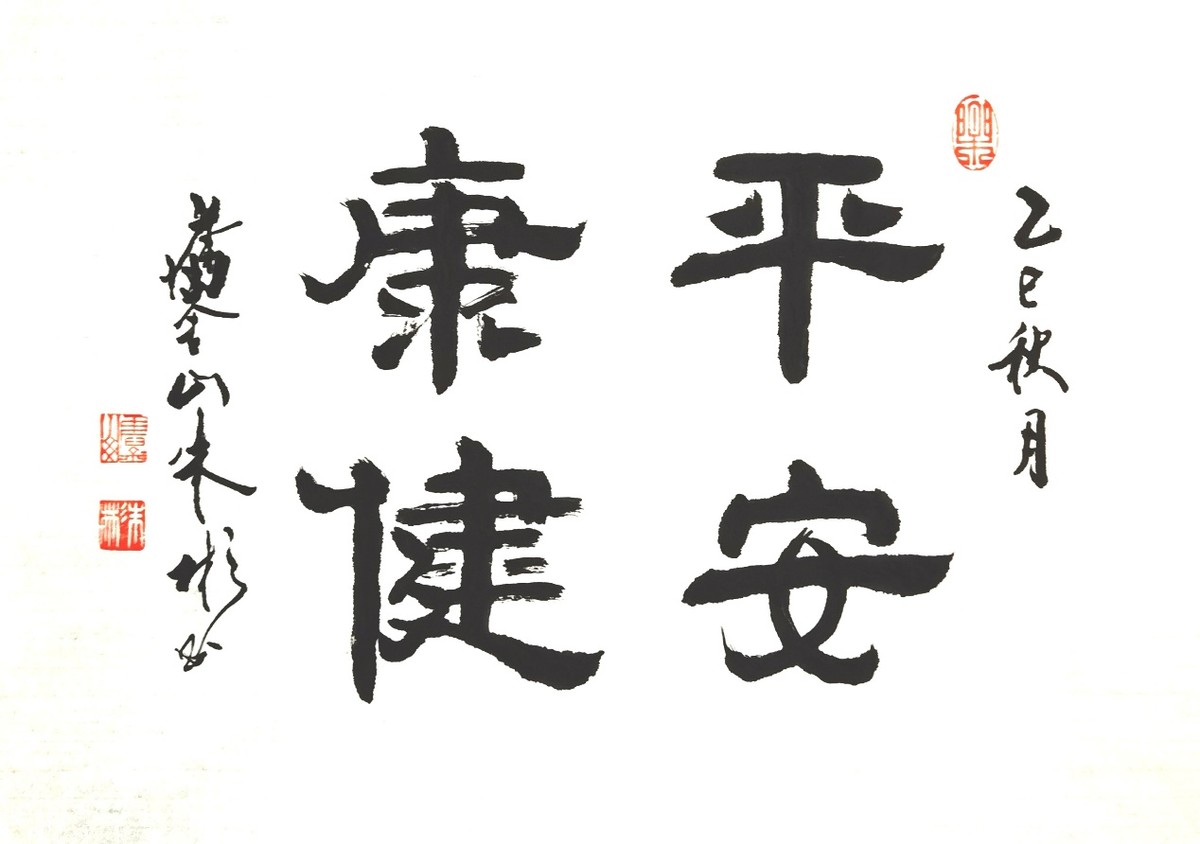 乙巳秋月
平安
康健
山朱彬書